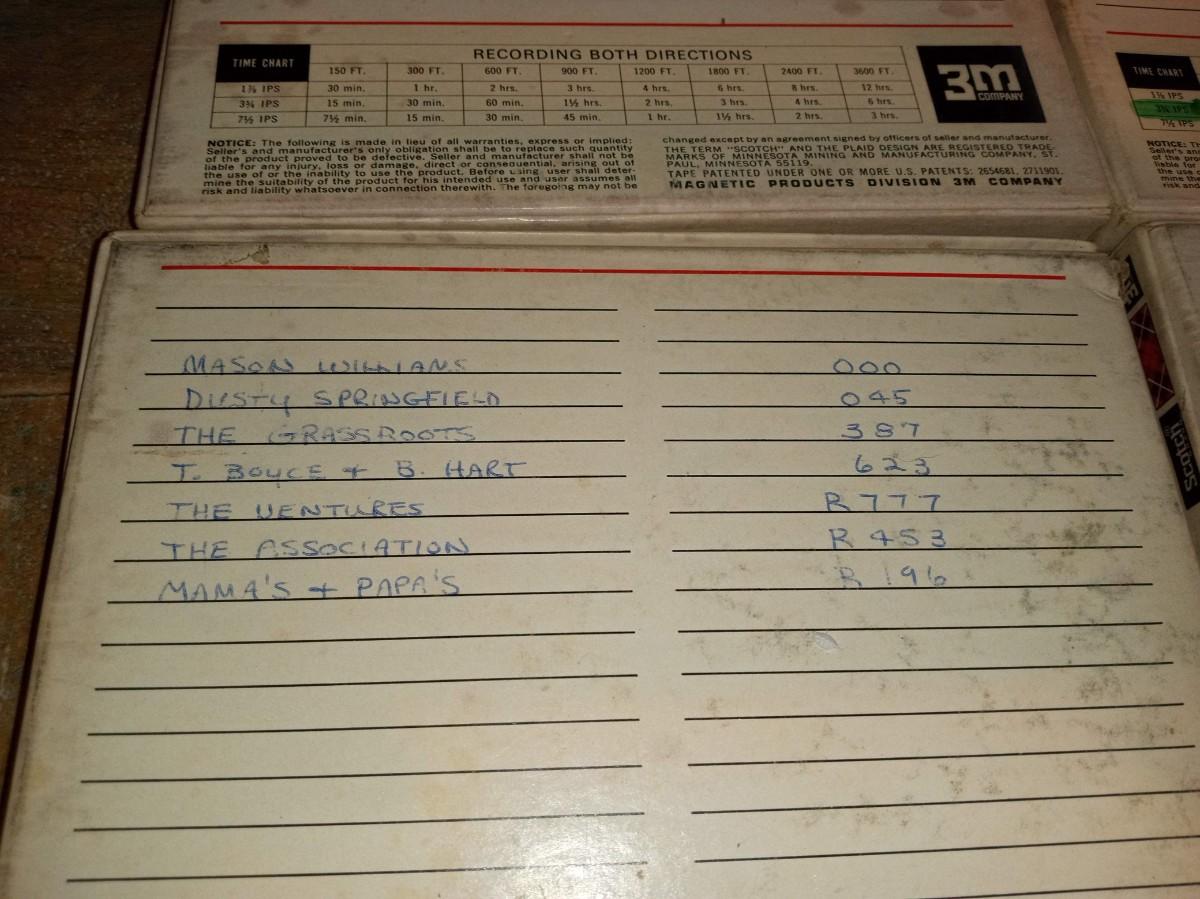 RECORDING BOTH DIRECTIONS
TIME CHART 150 FT. 300 FT. 600 FT. 900 FT. 1200 FT. 1800 FT. 2400 FT. 3600 FT.
1⅞ IPS 30 min. 1 hr. 2 hrs. 3 hrs. 4 hrs. 6 hrs. 8 hrs. 12 hrs.
3¾ IPS 15 min. 30 min. 60 min. 1½ hrs. 2 hrs. 3 hrs. 4 hrs. 6 hrs.
7½ IPS 7½ min. 15 min. 30 min. 45 min. 1 hr. 1½ hrs. 2 hrs. 3 hrs.
3M
COMPANY
NOTICE: The following is made in lieu of all warranties, express or implied:
Seller's and manufacturer's only obligation shall be to replace such quantity
of the product proved to be defective. Seller and manufacturer shall not be
liable for any injury, loss or damage, direct or consequential, arising out of
the use of or the inability to use the product. Before using user shall deter-
mine the suitability of the product for his intended use and user assumes all
risk and liability whatsoever in connection therewith. The foregoing may not be
changed except by an agreement signed by officers of seller and manufacturer.
THE TERM "SCOTCH" AND THE PLAID DESIGN ARE REGISTERED TRADE-
MARKS OF MINNESOTA MINING AND MANUFACTURING COMPANY, ST.
PAUL, MINNESOTA 55119.
TAPE PATENTED UNDER ONE OR MORE U.S. PATENTS: 2654681, 2711901.
MAGNETIC PRODUCTS DIVISION 3M COMPANY
TIME CHART
1⅞ IPS
3¾ IPS
7½ IPS
NOTICE: Th
Seller's and
of the pro
liable for
the use o
mine the
risk and
MASON WILLIANS 000
DUSTY SPRINGFIELD 045
THE GRASSROOTS 387
T. BOYCE + B. HART 623
THE VENTURES R 777
THE ASSOCIATION R 453
MAMA'S + PAPA'S R 196
Scotch